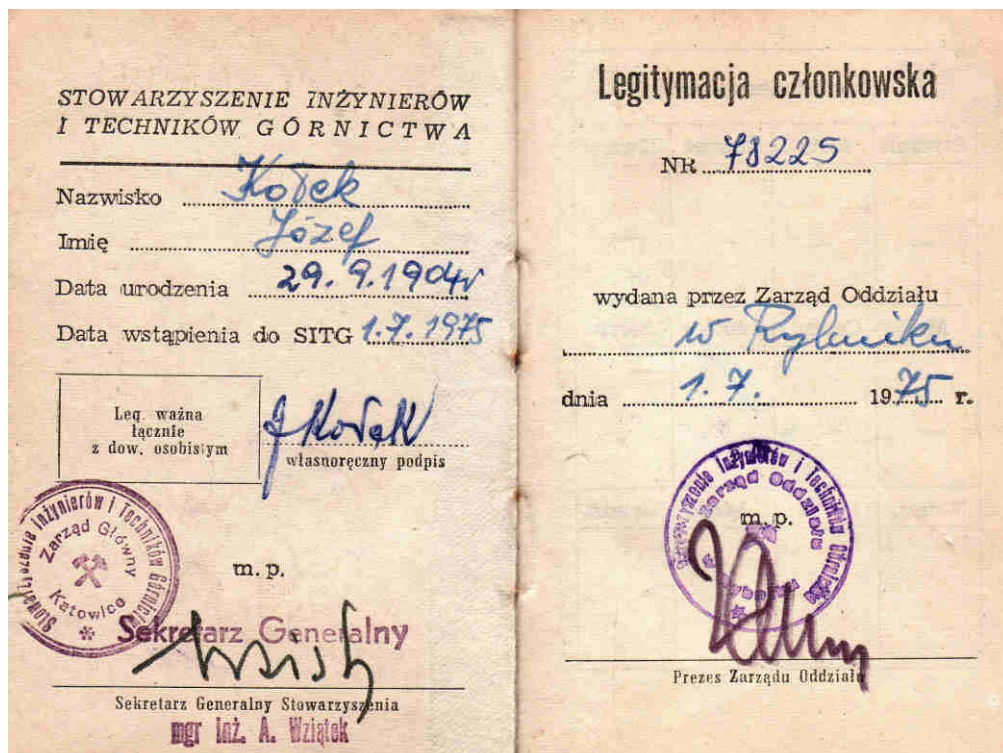 STOWARZYSZENIE INŻYNIERÓW
I TECHNIKÓW GÓRNICTWA
Nazwisko Kołek
Imię Józef
Data urodzenia 29. 9. 1904r
Data wstąpienia do SITG 1.7. 1975
Leg. ważna
łącznie
z dow. osobistym
J Kołek
własnoręczny podpis
Stowarzyszenie Inżynierów i Techników Górnictwa
Zarząd Główny
Katowice
m. p.
Sekretarz Generalny
Sekretarz Generalny Stowarzyszenia
mgr inż. A. Wziątek
Legitymacja członkowska
NR 78225
wydana przez Zarząd Oddziału
w Rybniku
dnia 1. 7. 1975 r.
Stowarzyszenie Inżynierów i Techników Górnictwa
Zarząd Oddziału
w Rybniku
m. p.
Prezes Zarządu Oddziału